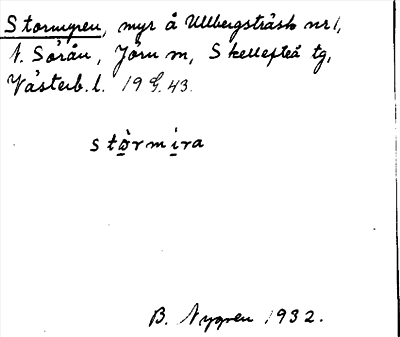 Stormyren, myr å Ullbergsträsk nr 1,
N. Sörån, Jörn sn, Skellefteå tg,
Västerb. l. 19 G. 43.
stòrmịra
B. Nygren 1932.